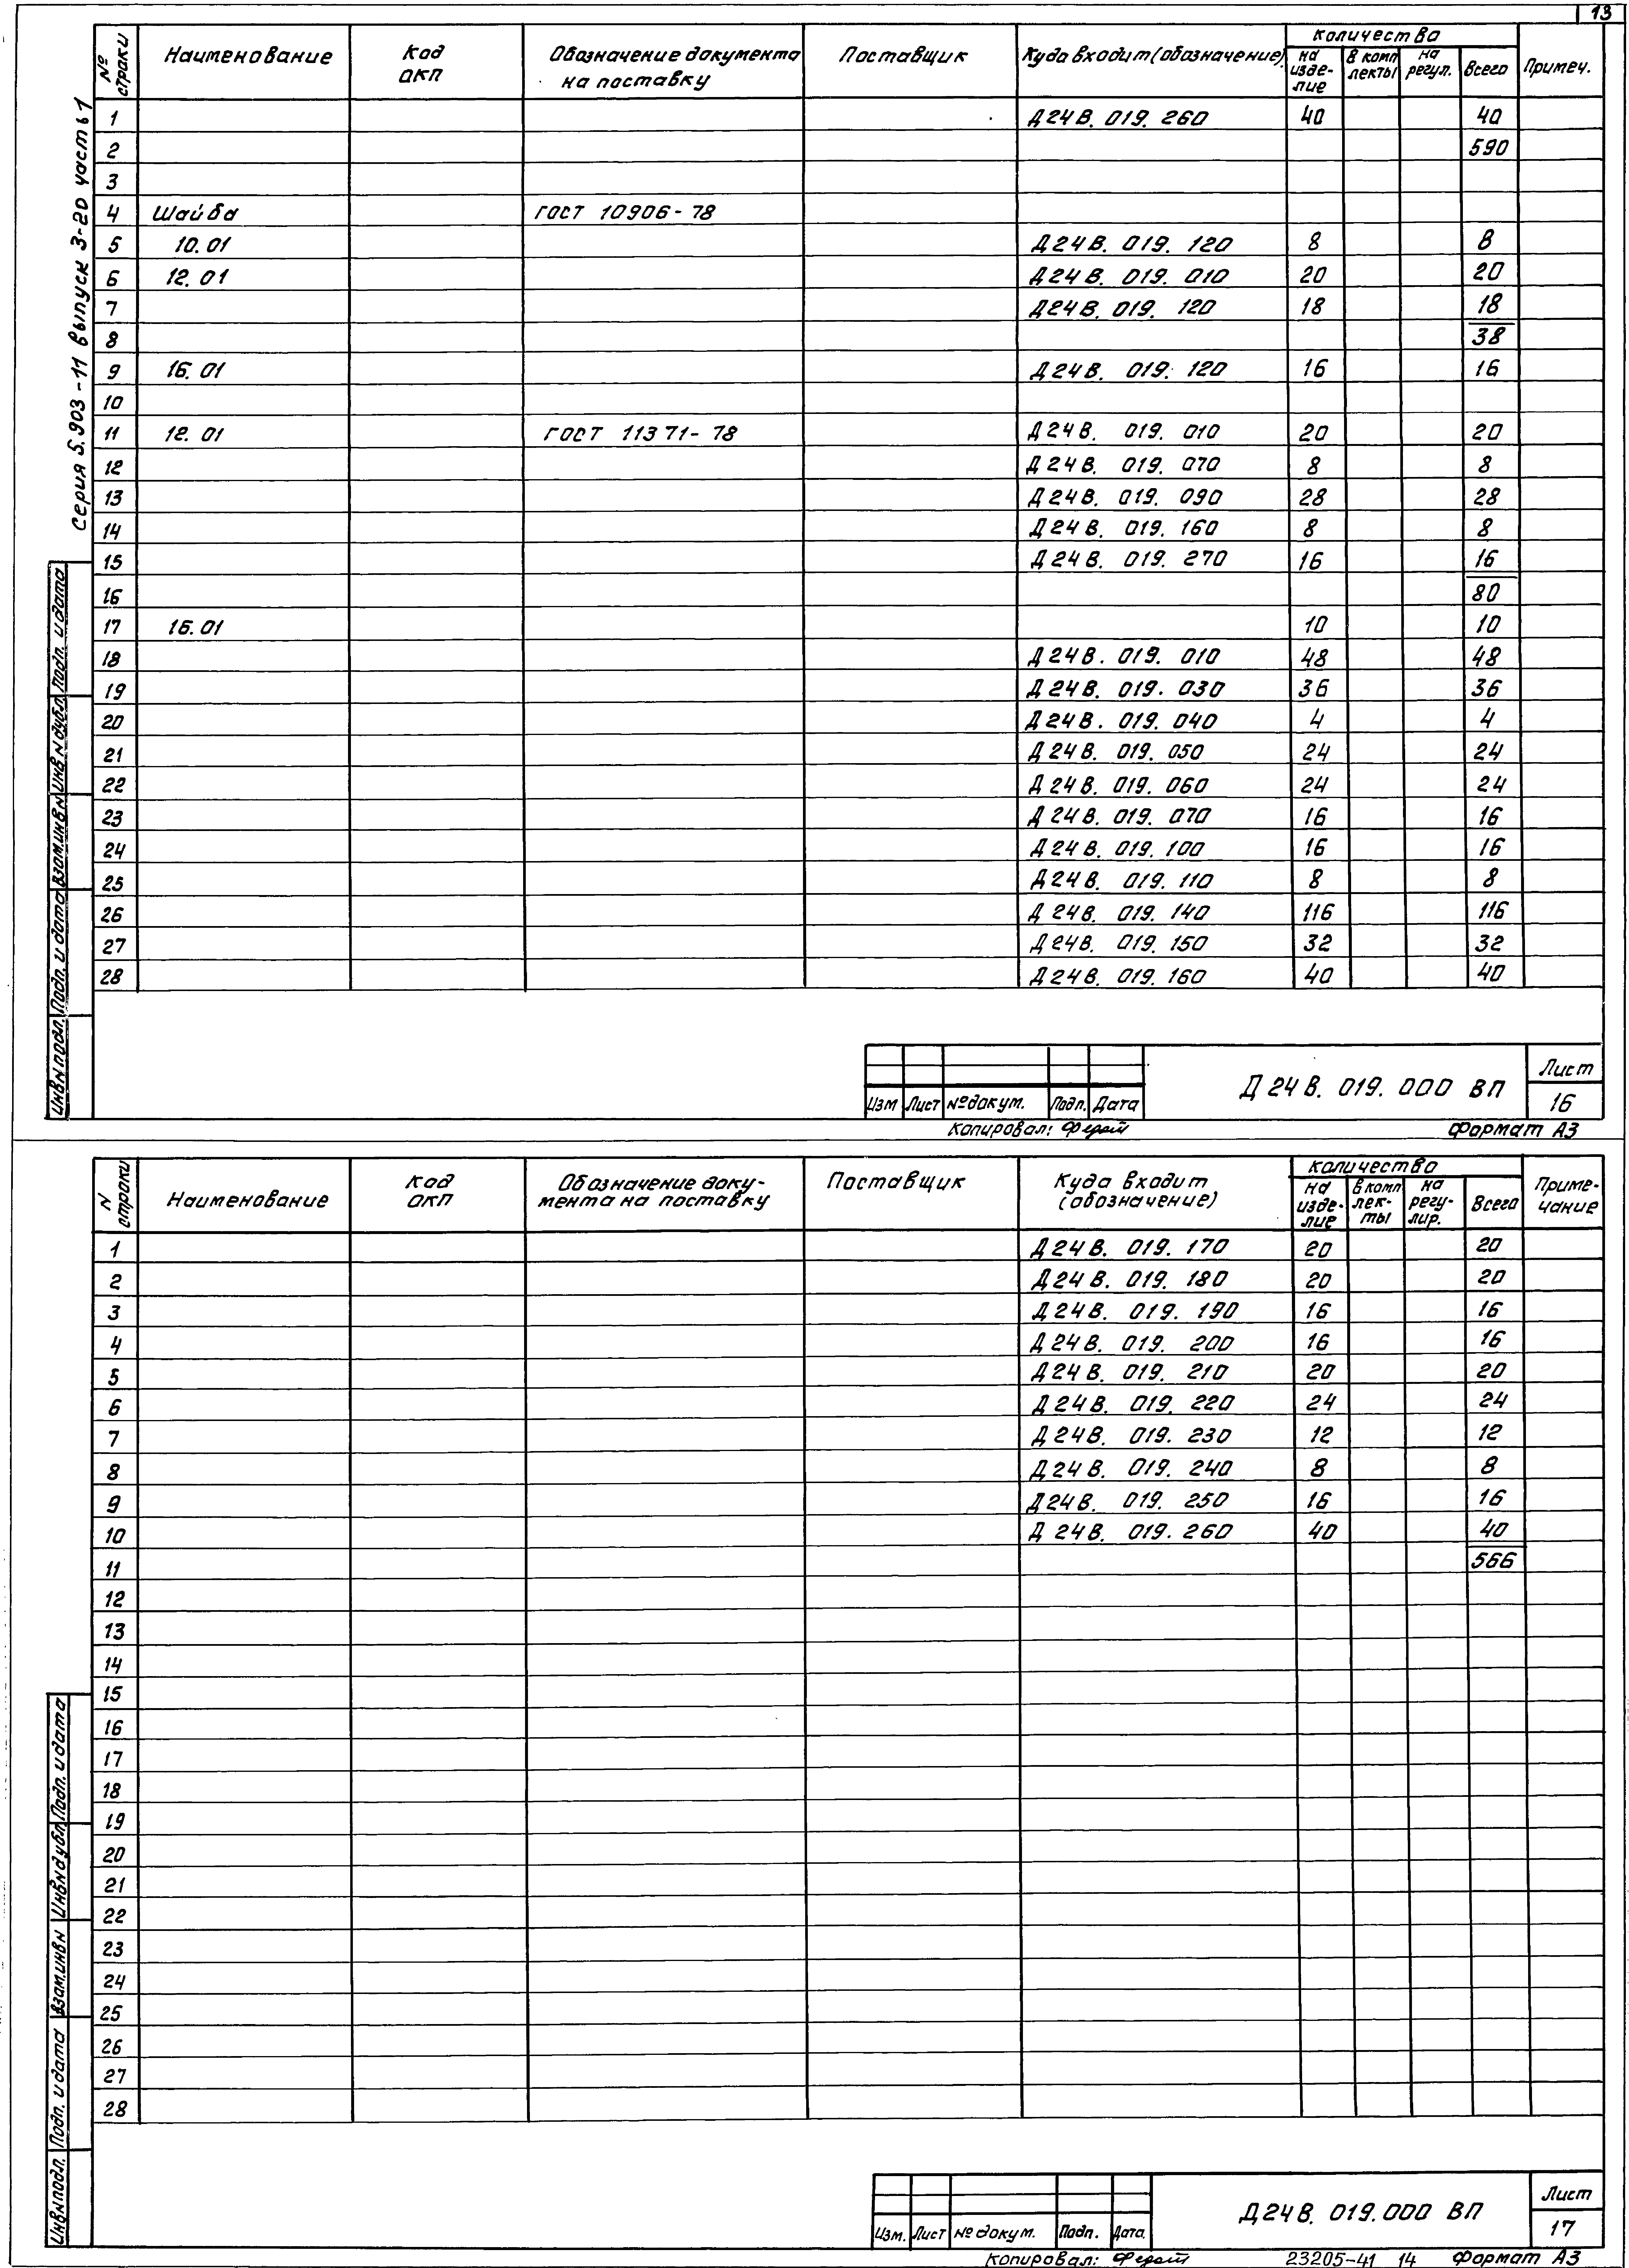 13
Серия 5.903-11 выпуск 3-20 часть 1
№ строки Наименование Код ОКП Обозначение документа на поставку Поставщик Куда входит (обозначение) Количество на изделие В комплекты на регул. Всего Примеч.
1 Д24В.019.260 40 40
2 590
3
4 Шайба ГОСТ 10906-78
5 10.01 Д24В.019.120 8 8
6 12.01 Д24В.019.010 20 20
7 Д24В.019.120 18 18
8 38
9 16.01 Д24В.019.120 16 16
10
11 12.01 ГОСТ 11371-78 Д24В.019.010 20 20
12 Д24В.019.070 8 8
13 Д24В.019.090 28 28
14 Д24В.019.160 8 8
15 Д24В.019.270 16 16
16 80
17 16.01 10 10
18 Д24В.019.010 48 48
19 Д24В.019.030 36 36
20 Д24В.019.040 4 4
21 Д24В.019.050 24 24
22 Д24В.019.060 24 24
23 Д24В.019.070 16 16
24 Д24В.019.100 16 16
25 Д24В.019.110 8 8
26 Д24В.019.140 116 116
27 Д24В.019.150 32 32
28 Д24В.019.160 40 40
Инв№подл. Подп. и дата Взам.инв№ Инв№дубл. Подп. и дата
Изм Лист №докум. Подп. Дата
Д24В.019.000 ВП
Лист
16
Копировал: Формат А3
N строки Наименование Код ОКП Обозначение доку-мента на поставку Поставщик Куда входит (обозначение) Количество на изде-лие в комп лек-ты на регу-лир. Всего Приме-чание
1 Д24В.019.170 20 20
2 Д24В.019.180 20 20
3 Д24В.019.190 16 16
4 Д24В.019.200 16 16
5 Д24В.019.210 20 20
6 Д24В.019.220 24 24
7 Д24В.019.230 12 12
8 Д24В.019.240 8 8
9 Д24В.019.250 16 16
10 Д24В.019.260 40 40
11 566
12
13
14
15
16
17
18
19
20
21
22
23
24
25
26
27
28
Инв№подл. Подп. и дата Взам.инв№ Инв№дубл. Подп. и дата
Изм. Лист №докум. Подп. Дата
Д24В.019.000 ВП
Лист
17
Копировал: 23205-41 14 Формат А3